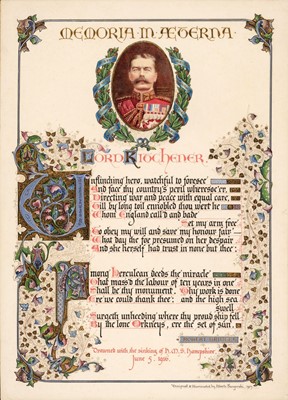 MEMORIA · IN · ÆTERNA
LORD KITCHENER
Unflinching hero, watchful to foresee
And face thy country's peril wheresoe'er,
Directing war and peace with equal care,
Till by long toil ennobled thou wert he
Whom England call'd and bade
Set my arm free
To obey my will and save my honour fair
What day the foe presumed on her despair
And she herself had trust in none but thee:
Among Herculean deeds the miracle
That mass'd the labour of ten years in one
Shall be thy monument. Thy work is done
Ere we could thank thee: and the high sea
swell
Surgeth unheeding where thy proud ship fell
By the lone Orkneys, ere the set of sun.
ROBERT BRIDGES
Drowned with the sinking of H.M.S. Hampshire
June 5, 1916.
Designed & Illuminated by